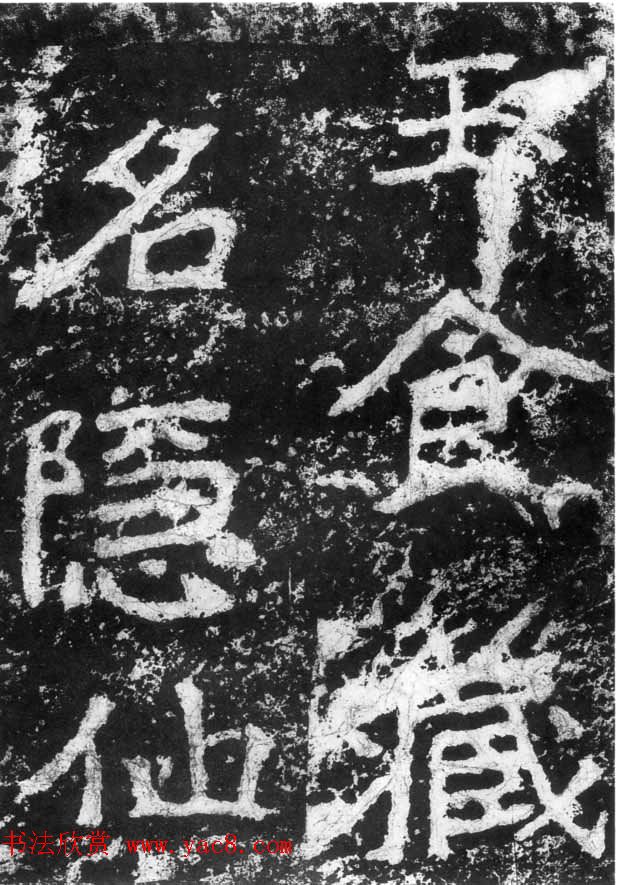 食藏
名隱仙
书法欣赏 www.yac8.com